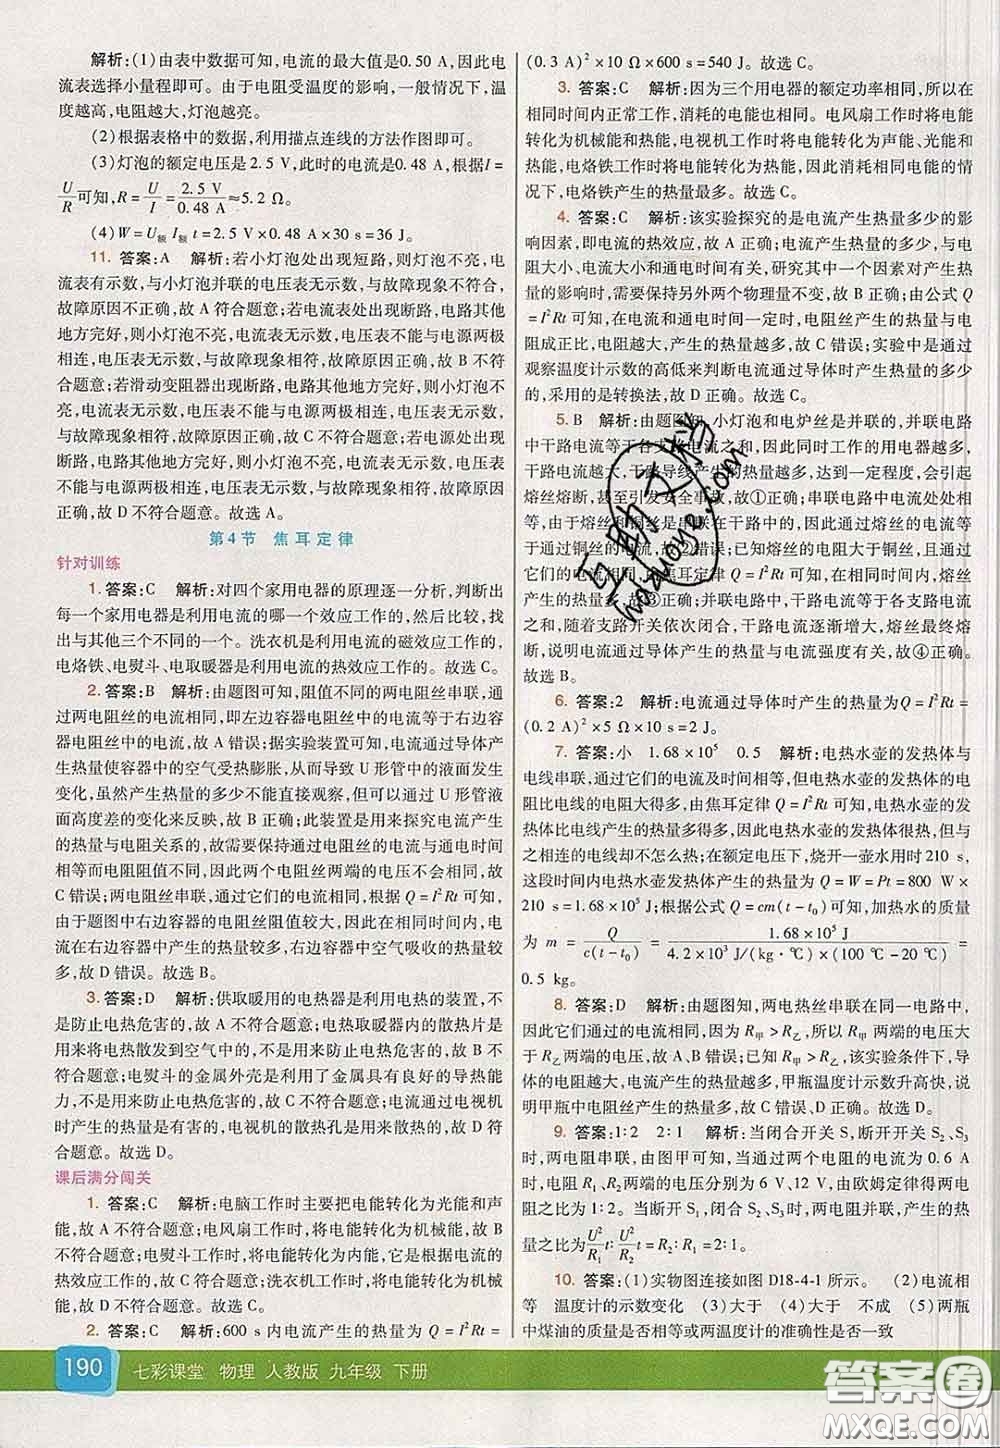 解析:(1)由表中数据可知,电流的最大值是0.50 A,因此电
流表选择小量程即可。由于电阻受温度的影响,一般情况下,温
度越高,电阻越大,灯泡越亮。
(2)根据表格中的数据,利用描点连线的方法作图即可。
(3)灯泡的额定电压是2.5 V,此时的电流是0.48 A,根据I=
U/R可知,R=U/I=2.5 V/0.48 A≈5.2 Ω。
(4)W=U额 I额 t=2.5 V×0.48 A×30 s=36 J。
11. 答案:A 解析:若小灯泡处出现短路,则灯泡不亮,电流
表有示数,与小灯泡并联的电压表示数为零,与故障现象不符合,
故障原因不正确,故 A 符合题意;若电流表处出现短路,电路其他
地方完好,则小灯泡不亮,电流表无示数,电压表不能与电源两极
相连,电压表无示数,与故障现象相符,故障原因正确,故 B 不符
合题意;若滑动变阻器出现断路,电路其他地方完好,则小灯泡不
亮,电流表无示数,电压表不能与电源两极相连,电压表无示数,与
故障现象相符,故障原因正确,故 C 不符合题意;若小灯泡处出现
断路,电路其他地方完好,则小灯泡不亮,电流表无示数,电压表不
能与电源两极相连,电压表无示数,与故障现象相符,故障原因正
确,故 D 不符合题意。故选 A。
第 4 节 焦耳定律
针对训练
1. 答案:C 解析:对四个家用电器的原理逐一分析,判断出
每一个家用电器是利用电流的哪一个效应工作的,然后对比,找
出与其它三个不同的一个。洗衣机是利用电流的磁效应工作的,
电烙铁、电熨斗、电取暖器是利用电流的热效应工作的。故选 C。
2. 答案:B 解析:由题图可知,阻值不同的两电阻丝串联,通
过两电阻丝的电流相同,即左边容器电阻丝中的电流等于右边容
器电阻丝中的电流,故 A 错误;据实验装置可知,电流通过导体产
生热量使容器中的空气受热膨胀,从而导致 U 形管中的液面发生
变化,虽然产生热量的多少不能直接观察,但可以通过 U 形管液
面高度差的变化来反映,故 B 正确;此装置是用来探究电流产生
的热量与电阻关系的,实验中要控制电流和通电时间不变,而电
阻不等的两电阻丝串联,通过电阻丝两端的电压不会相同,故
C 错误;两电阻丝串联,通过它们的电流相同,根据 Q=I²Rt 可知,
由于题图中右边容器的电阻丝阻值较大,因此在相同时间内,电
流在右边容器中产生的热量较多,右边容器中空气吸收的热量较
多,故 D 错误。故选 B。
3. 答案:D 解析:供取暖用的电热器是利用电热的装置,不
是防止电热危害的,故 A 不符合题意;电热取暖器中的散热片是
用来将电热散发到空气中的,不是用来防止电热危害的,故 B 不
符合题意;电熨斗的金属外壳是利用了金属具有良好的导热能
力,不是防止电热危害的,故 C 不符合题意;电流通过电视机
时产生的热量是有害的,电视机的散热孔是用来散热的,故 D 符
合题意。故选 D。
课后满分闯关
1. 答案:C 解析:电脑工作时主要把电能转化为光能和声
能,故 A 不符合题意;电风扇工作时,将电能转化为机械能,故 B
不符合题意;电熨斗工作时,将电能转化为内能,它是根据电流的
热效应工作的,故 C 符合题意;洗衣机工作时,将电能转化为机械
能,故 D 不符合题意。故选 C。
2. 答案:C 解析:600 s 内电流产生的热量为 Q=I²Rt=
(0.3 A)²×10 Ω×600 s=540 J。故选 C。
3. 答案:C 解析:因为三个用电器的额定功率相同,所以在
相同时间内正常工作,消耗的电能也相同。电风扇工作时将电能
转化为机械能和热能,电视机工作时将电能转化为声能、光能和
热能,电烙铁工作时将电能转化为热能,因此消耗相同电能的情
况下,电烙铁产生的热量最多。故选 C。
4. 答案:C 解析:该实验探究的是电流产生热量多少的影
响因素,即电流的热效应,故 A 正确;电流产生热量的多少,与电
阻大小、电流大小和通电时间有关,研究其中一个因素对产生热
量的影响时,需要保持另外两个物理量不变,故 B 正确;由公式 Q
=I²Rt 可知,在电流和通电时间一定时,电阻丝产生的热量与电
阻成正比,电阻越大,产生的热量越多,故 C 错误;实验中是通过
观察温度计示数的高低来判断电流通过导体时产生热量的多少
的,采用的是转换法,故 D 正确。故选 C。
5. B 解析:由题图知,小灯泡和电炉丝是并联的,并联电路
中干路电流等于各支路电流之和,因此同时工作的用电器越多,
干路电流越大,干路导线产生的热量越多,达到一定程度,会引起
熔丝熔断,甚至引发安全事故,故①正确;串联电路中电流处处相
等,
等的,故②错误;已知熔丝的电阻大于铜丝,且通过它
们的电流相同,根据焦耳定律 Q=I²Rt 可知,在相同时间内,熔丝
产生的热量多,故③正确;并联电路中,干路电流等于各支路电流
之和,随着支路开关依次闭合,干路电流逐渐增大,熔丝最终熔
断,说明电流通过导体产生的热量与电流强度有关,故④正确。
故选 B。
6. 答案:2 解析:电流通过导体时产生的热量为 Q=I²Rt=
(0.2 A)²×5 Ω×10 s=2 J。
7. 答案:小 1.68×10⁵ 0.5 解析:电热水壶的发热体与
电线串联,通过它们的电流及时间相等,但电热水壶的发热体的电
阻比电线的电阻大得多,由焦耳定律 Q=I²Rt 可知,电热水壶的发
热体比电线产生的热量多得多,因此电热水壶的发热体很热,但与
之相连的电线却不怎么热;在额定电压下,烧开一壶水用时210 s,
这段时间内电热水壶发热体产生的热量为 Q=W=Pt=800 W×
210 s=1.68×10⁵ J;根据公式 Q=cm(t-t₀)可知,加热水的质量
为 m=Q/c(t-t₀)=1.68×10⁵ J/4.2×10³ J/(kg·℃)×(100 ℃-20 ℃)=
0.5 kg。
8. 答案:D 解析:由题图知,两电热丝串联在同一电路中,
因此它们通过的电流相同,因为 R甲>R乙,所以 R甲 两端的电压大
于 R乙两端的电压,故 A、B 错误;已知 R甲>R乙,该实验条件下,导
体的电阻越大,电流产生的热量越多,甲瓶温度计示数升高快,说
明甲瓶中电阻丝产生的热量多,故 C 错误、D 正确。故选 D。
9. 答案:1∶2 2∶1 解析:当闭合开关 S,断开开关 S₂、S₃
时,两电阻串联,由图甲可知,当通过两电阻中的电流为 0.6 A
时,电阻 R₁、R₂两端的电压分别为 6 V、12 V,由欧姆定律得两电
阻之比为 1∶2。当断开 S₁,闭合 S₂、S₃时,两电阻并联,产生的热
量之比为 U²/R₁ t∶U²/R₂ t=R₂∶R₁=2∶1。
10. 答案:(1)实物图连接如图 D18-4-1 所示。 (2)电流相
等 温度计的示数变化 (3)大于 (4)大于 不成 (5)两瓶
中煤油的质量是否相等或两温度计的准确性是否一致
190 七彩课堂 物理 人教版 九年级 下册
互助文档
hdzuoye.com
答案圈
MXQE.COM